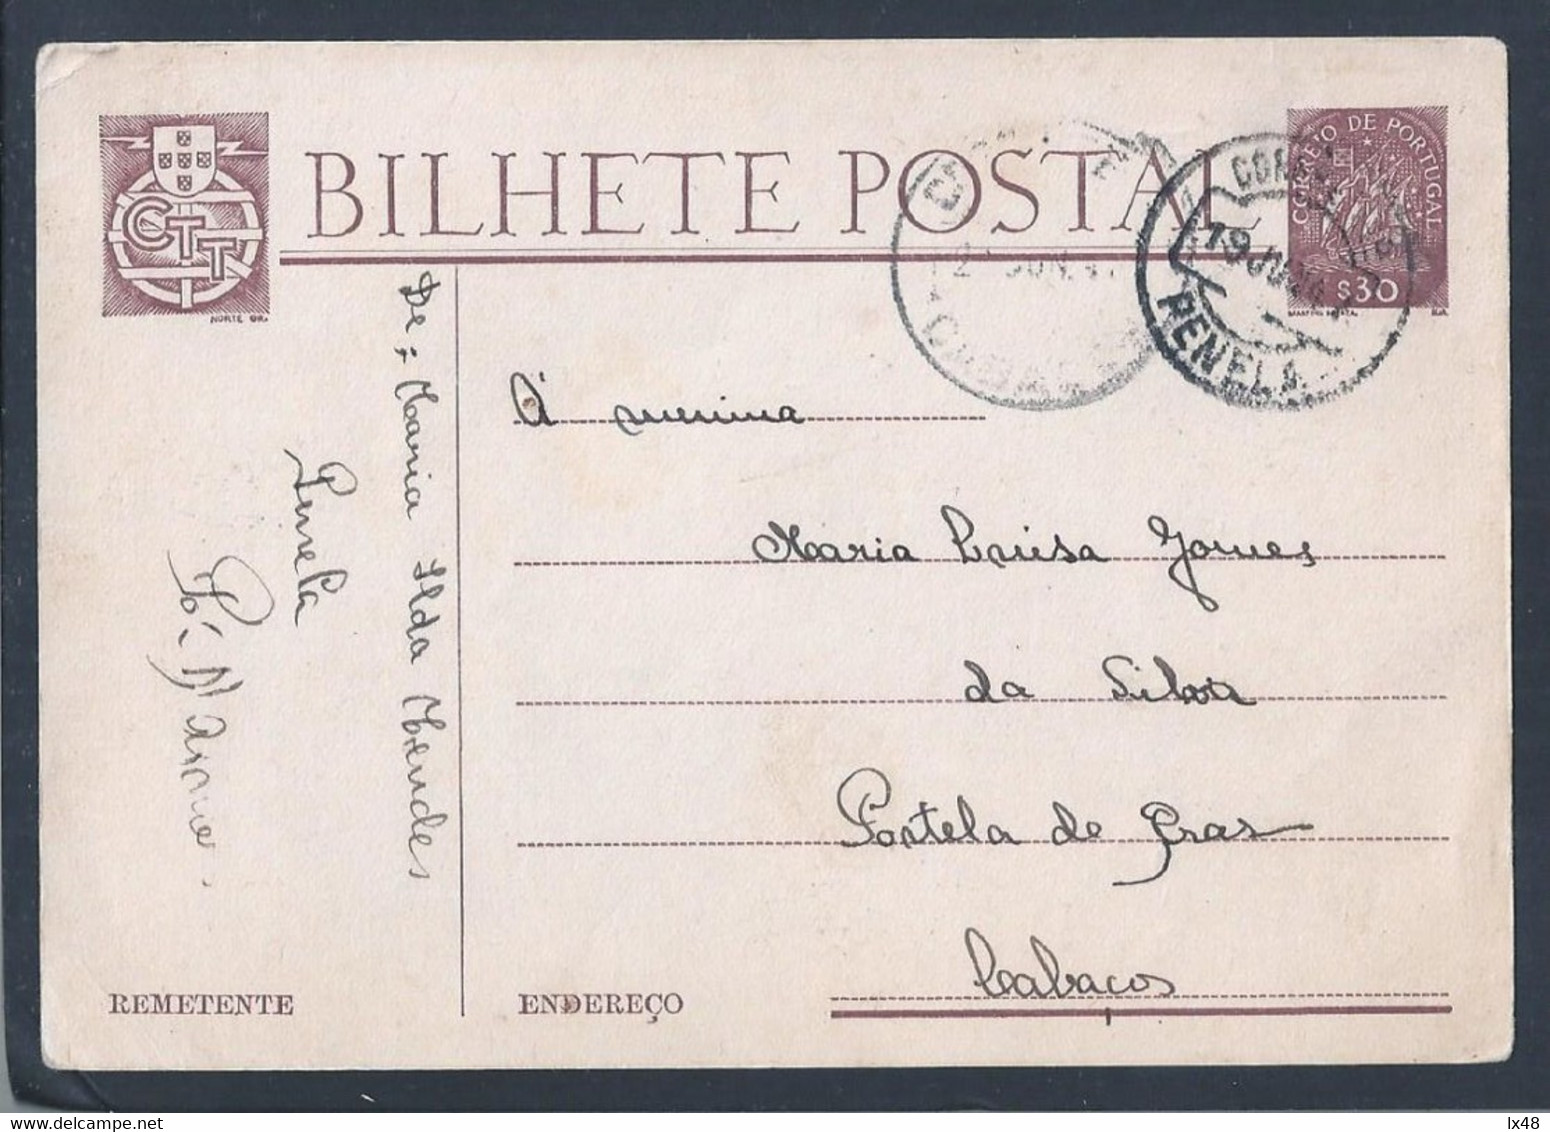 BILHETE POSTAL
CTT
NORTE GR.
CORREIO DE PORTUGAL
$30
19 JUN
PENELA
JUN. 4
CABAÇOS
De, Maria Ilda Mendes
Penela
À menina
Maria Luisa Gomes
da Silva
Portela de Bras
Cabaços
REMETENTE
ENDEREÇO
lx48